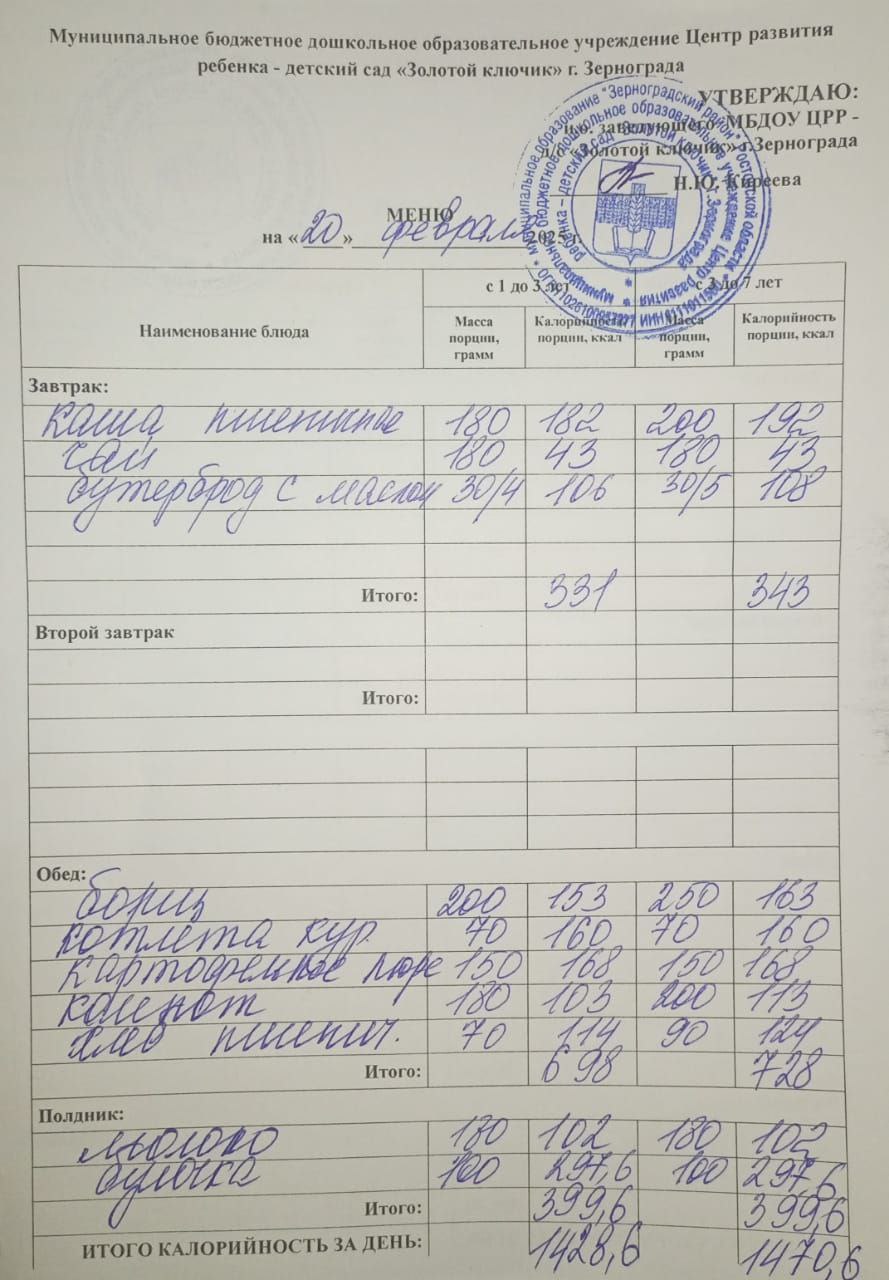 Муниципальное бюджетное дошкольное образовательное учреждение Центр развития
ребенка - детский сад «Золотой ключик» г. Зернограда
УТВЕРЖДАЮ:
и.о. заведующего МБДОУ ЦРР -
д/с «Золотой ключик» г.Зернограда
Н.Ю. Киреева
МЕНЮ
на «20» февраля 2025 г.
Наименование блюда с 1 до 3 лет с 3 до 7 лет
Масса порции, грамм Калорийность порции, ккал Масса порции, грамм Калорийность порции, ккал
Завтрак:
каша пшенная 180 182 200 192
чай 180 43 180 43
бутерброд с маслом 30/4 106 30/5 108
Итого: 331 343
Второй завтрак
Итого:
Обед:
борщ 200 153 250 163
котлета кур. 70 160 70 160
картофельное пюре 150 168 150 168
компот 180 103 200 113
хлеб пшенич. 70 114 90 124
Итого: 698 728
Полдник:
молоко 180 102 180 102
булочка 100 297,6 100 297,6
Итого: 399,6 399,6
ИТОГО КАЛОРИЙНОСТЬ ЗА ДЕНЬ: 1428,6 1470,6